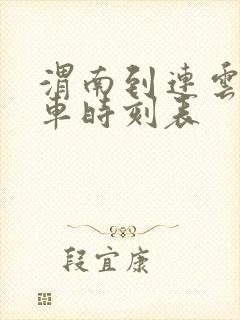 渭南到連雲
車時刻表
段宜康